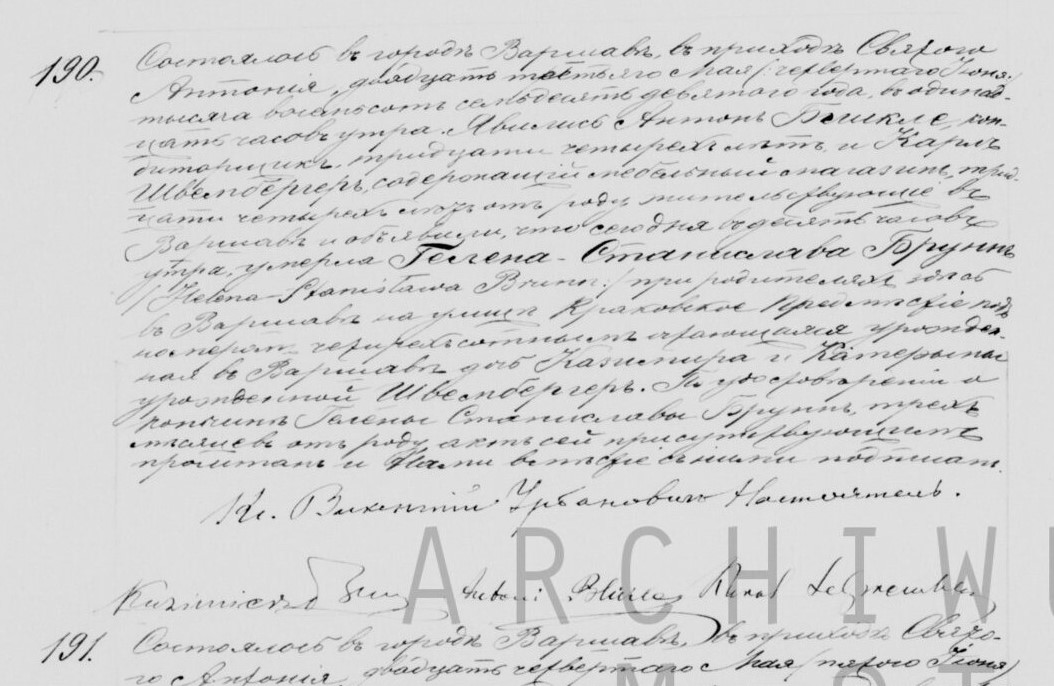 190. Состоялось въ городѣ Варшавѣ, въ приходѣ Святого
Антонія, двадцать третьяго Мая /: четвертаго Іюня :/
тысяча восемьсотъ семьдесятъ девятого года, въ одинад-
цать часовъ утра. Явились Антонъ кон-
диторщикъ, тридцати четырехъ лѣтъ, и Карлъ
Швембергеръ, содержащій мебельный магазинъ, трид-
цати четырехъ лѣтъ отъ роду, жительствующіе въ
Варшавѣ и объявили, что сегодня въ девять часовъ
утра, умерла Гелена-Станислава Бруннъ
/: Helena-Stanisława Brunn :/ при родителяхъ здѣсь
въ Варшавѣ на улицѣ Краковское Предмѣстіе подъ
номеромъ четырехсотнымъ урожден-
ная въ Варшавѣ дочь Казимира и Катерины
урожденной Швембергеръ. По удостовѣреніи о
кончинѣ Гелены Станиславы Бруннъ, трехъ
мѣсяцевъ отъ роду, актъ сей присутствующимъ
прочитанъ и Нами вмѣстѣ съ ними подписанъ.
Кс. Викентій Урбановичъ Настоятель.
ARCHIWU
Kazimierz Antoni Karol
191. Состоялось въ городѣ Варшавѣ, въ приходѣ Свято-
го Антонія, двадцать четвертаго Мая /: пятого Іюня